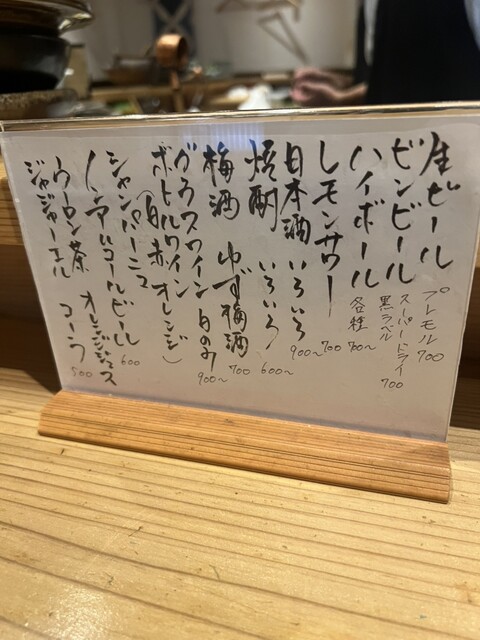 生ビール プレモル 700
ビンビール スーパードライ 黒ラベル 700
ハイボール 各種 700〜
レモンサワー 700
日本酒 いろいろ 900〜
焼酎 いろいろ 600〜
梅酒 ゆず梅酒 700
グラスワイン 白のみ 900〜
ボトルワイン (白 赤 オレンジ)
シャンパーニュ
ノンアルコールビール 600
ウーロン茶 オレンジジュース
ジンジャーエール コーラ 500